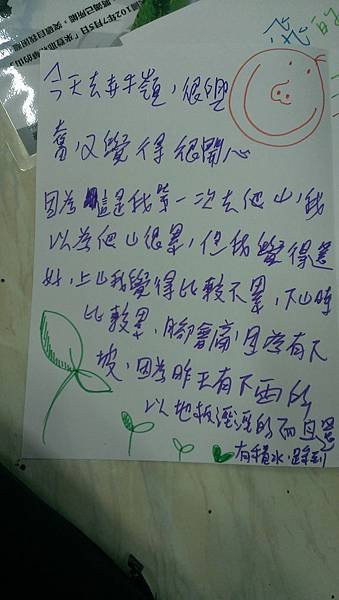 102年7月5日「東
我的
今天去嶺，很興
奮，又覺得很開心
因為這是我第一次去爬山，我
以為爬山很累，但我覺得還
好，上山我覺得比較不累，下山時
比較累，腳會痛，因為有下
坡，因為昨天有下雨所
以地板溼溼的而且還
有積水，踩到